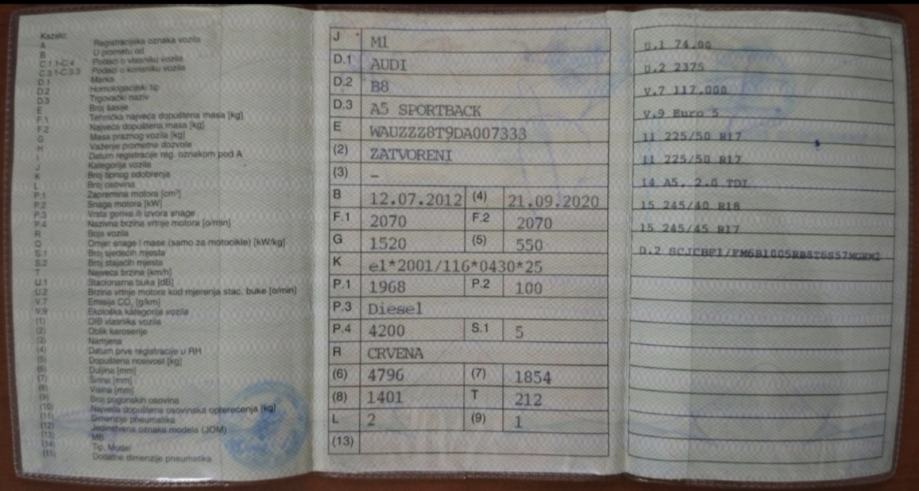 Kazalo:
A Registracijska oznaka vozila
B U prometu od
C.1.1-C.4 Podaci o vlasniku vozila
C.3.1-C.3.3 Podaci o korisniku vozila
D.1 Marka
D.2 Homologacijski tip
D.3 Trgovački naziv
E Broj šasije
F.1 Tehnička najveća dopuštena masa [kg]
F.2 Najveća dopuštena masa [kg]
G Masa praznog vozila [kg]
H Važenje prometne dozvole
I Datum registracije reg. oznakom pod A
J Kategorija vozila
K Broj tipnog odobrenja
L Broj osovina
P.1 Zapremina motora [cm³]
P.2 Snaga motora [kW]
P.3 Vrsta goriva ili izvora snage
P.4 Nazivna brzina vrtnje motora [o/min]
R Boja vozila
Q Omjer snage i mase (samo za motocikle) [kW/kg]
S.1 Broj sjedećih mjesta
S.2 Broj stajaćih mjesta
T Najveća brzina [km/h]
U.1 Stacionarna buka [dB]
U.2 Brzina vrtnje motora kod mjerenja stac. buke [o/min]
V.7 Emisija CO₂ [g/km]
V.9 Ekološka kategorija vozila
(1) OIB vlasnika vozila
(2) Oblik karoserije
(3) Namjena
(4) Datum prve registracije u RH
(5) Dopuštena nosivost [kg]
(6) Duljina [mm]
(7) Širina [mm]
(8) Visina [mm]
(9) Broj pogonskih osovina
(10) Najveća dopuštena osovinska opterećenja [kg]
(11) Dimenzije pneumatika
(12) Jedinstvena oznaka modela (JOM)
(13) MB
(14) Tip, Model
(15) Dodatne dimenzije pneumatika
J M1
D.1 AUDI
D.2 B8
D.3 A5 SPORTBACK
E WAUZZZ8T9DA007333
(2) ZATVORENI
(3) –
B 12.07.2012 (4) 21.09.2020
F.1 2070 F.2 2070
G 1520 (5) 550
K e1*2001/116*0430*25
P.1 1968 P.2 100
P.3 Diesel
P.4 4200 S.1 5
R CRVENA
(6) 4796 (7) 1854
(8) 1401 T 212
L 2 (9) 1
(13)
U.1 74.00
U.2 2375
V.7 117.000
V.9 Euro 5
11 225/50 R17
11 225/50 R17
14 A5, 2.0 TDI
15 245/40 R18
15 245/45 R17
D.2